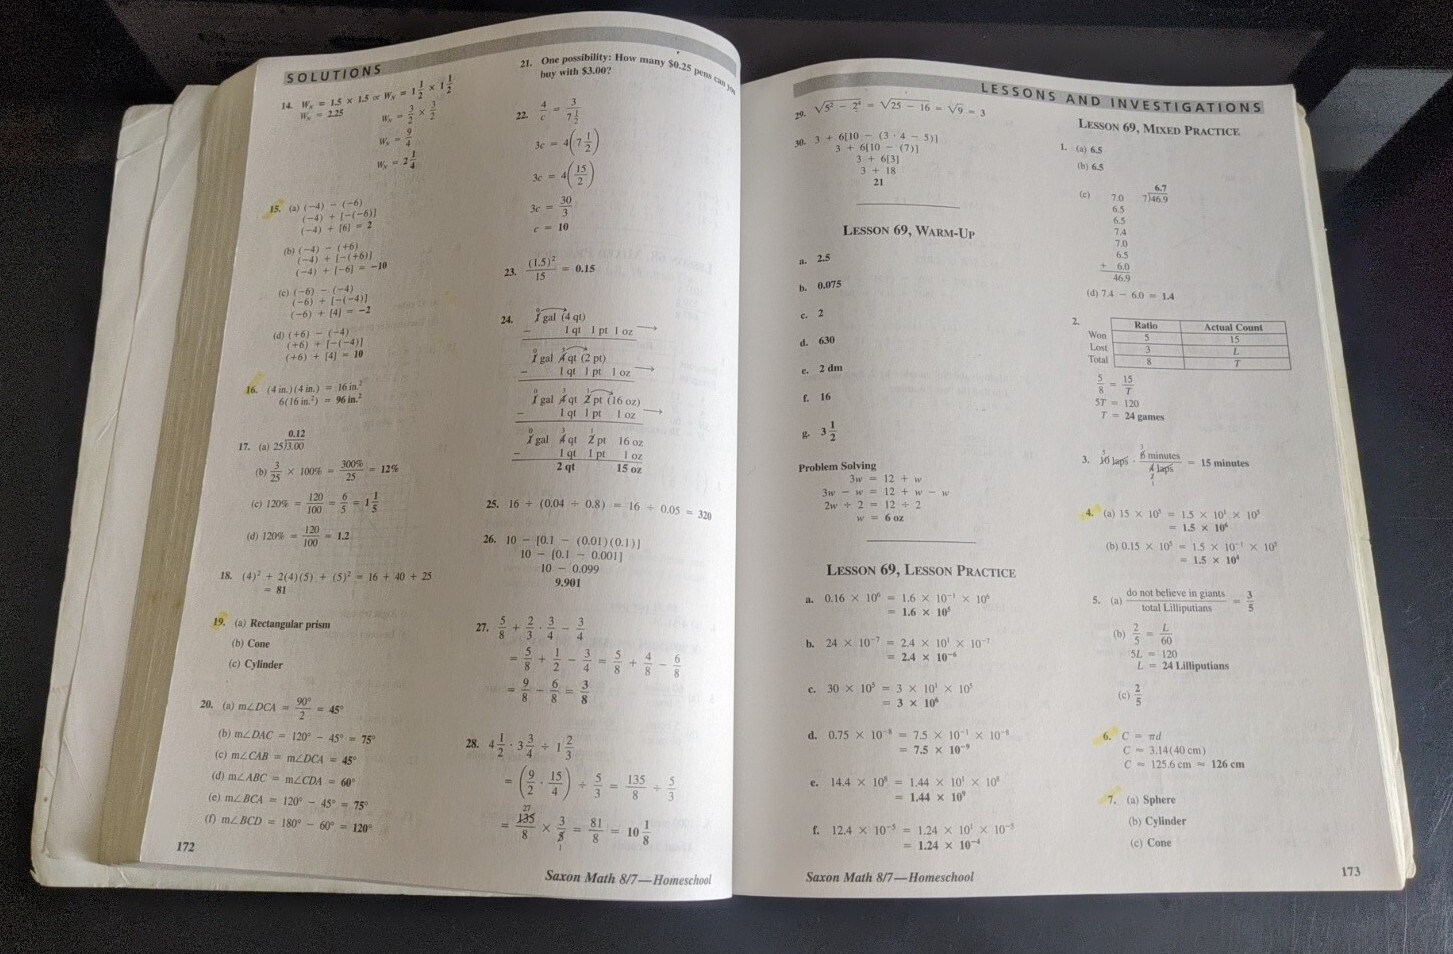 SOLUTIONS
14. W_N = 1.5 × 1.5 or W_N = 1 1/2 × 1 1/2
W_N = 2.25
W_N = 3/2 × 3/2
W_N = 9/4
W_N = 2 1/4
15. (a) (−4) − (−6)
(−4) + [−(−6)]
(−4) + [6] = 2
(b) (−4) − (+6)
(−4) + [−(+6)]
(−4) + [−6] = −10
(c) (−6) − (−4)
(−6) + [−(−4)]
(−6) + [4] = −2
(d) (+6) − (−4)
(+6) + [−(−4)]
(+6) + [4] = 10
16. (4 in.)(4 in.) = 16 in.²
6(16 in.²) = 96 in.²
17. (a) 0.12
25)3.00
(b) 3/25 × 100% = 300%/25 = 12%
(c) 120% = 120/100 = 6/5 = 1 1/5
(d) 120% = 120/100 = 1.2
18. (4)² + 2(4)(5) + (5)² = 16 + 40 + 25
= 81
19. (a) Rectangular prism
(b) Cone
(c) Cylinder
20. (a) m∠DCA = 90°/2 = 45°
(b) m∠DAC = 120° − 45° = 75°
(c) m∠CAB = m∠DCA = 45°
(d) m∠ABC = m∠CDA = 60°
(e) m∠BCA = 120° − 45° = 75°
(f) m∠BCD = 180° − 60° = 120°
172
21. One possibility: How many $0.25 pens can you
buy with $3.00?
22. 4/c = 3/7 1/2
3c = 4(7 1/2)
3c = 4(15/2)
3c = 30/3
c = 10
23. (1.5)²/15 = 0.15
24. 0
1 gal (4 qt)
− 1 qt 1 pt 1 oz
0 3
1 gal 4 qt (2 pt)
− 1 qt 1 pt 1 oz
0 3 1
1 gal 4 qt 2 pt (16 oz)
− 1 qt 1 pt 1 oz
0 3 1
1 gal 4 qt 2 pt 16 oz
− 1 qt 1 pt 1 oz
2 qt 15 oz
25. 16 ÷ (0.04 ÷ 0.8) = 16 ÷ 0.05 = 320
26. 10 − [0.1 − (0.01)(0.1)]
10 − [0.1 − 0.001]
10 − 0.099
9.901
27. 5/8 + 2/3 · 3/4 − 3/4
= 5/8 + 1/2 − 3/4 = 5/8 + 4/8 − 6/8
= 9/8 − 6/8 = 3/8
28. 4 1/2 · 3 3/4 ÷ 1 2/3
= (9/2 · 15/4) ÷ 5/3 = 135/8 ÷ 5/3
27
= 135/8 × 3/5 = 81/8 = 10 1/8
1
Saxon Math 8/7—Homeschool
LESSONS AND INVESTIGATIONS
29. √5² − 2⁴ = √25 − 16 = √9 = 3
30. 3 + 6[10 − (3 · 4 − 5)]
3 + 6[10 − (7)]
3 + 6[3]
3 + 18
21
LESSON 69, WARM-UP
a. 2.5
b. 0.075
c. 2
d. 630
e. 2 dm
f. 16
g. 3 1/2
Problem Solving
3w = 12 + w
3w − w = 12 + w − w
2w ÷ 2 = 12 ÷ 2
w = 6 oz
LESSON 69, LESSON PRACTICE
a. 0.16 × 10⁶ = 1.6 × 10⁻¹ × 10⁶
= 1.6 × 10⁵
b. 24 × 10⁻⁷ = 2.4 × 10¹ × 10⁻⁷
= 2.4 × 10⁻⁶
c. 30 × 10⁵ = 3 × 10¹ × 10⁵
= 3 × 10⁶
d. 0.75 × 10⁻⁸ = 7.5 × 10⁻¹ × 10⁻⁸
= 7.5 × 10⁻⁹
e. 14.4 × 10⁸ = 1.44 × 10¹ × 10⁸
= 1.44 × 10⁹
f. 12.4 × 10⁻⁵ = 1.24 × 10¹ × 10⁻⁵
= 1.24 × 10⁻⁴
Saxon Math 8/7—Homeschool
LESSON 69, MIXED PRACTICE
1. (a) 6.5
(b) 6.5
(c) 7.0
6.5
6.5
7.4
7.0
6.5
+ 6.0
46.9
6.7
7)46.9
(d) 7.4 − 6.0 = 1.4
2. Ratio Actual Count
Won 5 15
Lost 3 L
Total 8 T
5/8 = 15/T
5T = 120
T = 24 games
3. 5 3
10 laps · 6 minutes/4 laps = 15 minutes
1
4. (a) 15 × 10⁵ = 1.5 × 10¹ × 10⁵
= 1.5 × 10⁶
(b) 0.15 × 10⁵ = 1.5 × 10⁻¹ × 10⁵
= 1.5 × 10⁴
5. (a) do not believe in giants/total Lilliputians = 3/5
(b) 2/5 = L/60
5L = 120
L = 24 Lilliputians
(c) 2/5
6. C = πd
C ≈ 3.14(40 cm)
C ≈ 125.6 cm ≈ 126 cm
7. (a) Sphere
(b) Cylinder
(c) Cone
173